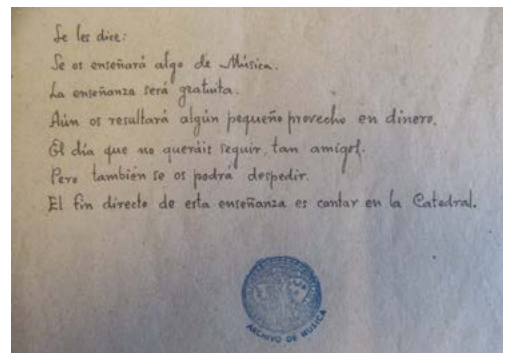 Se les dice:
Se os enseñará algo de Música.
La enseñanza será gratuita.
Aún os resultará algún pequeño provecho en dinero.
El día que no queráis seguir, tan amigos.
Pero también se os podrá despedir.
El fin directo de esta enseñanza es cantar en la Catedral.
ARCHIVO DE MUSICA